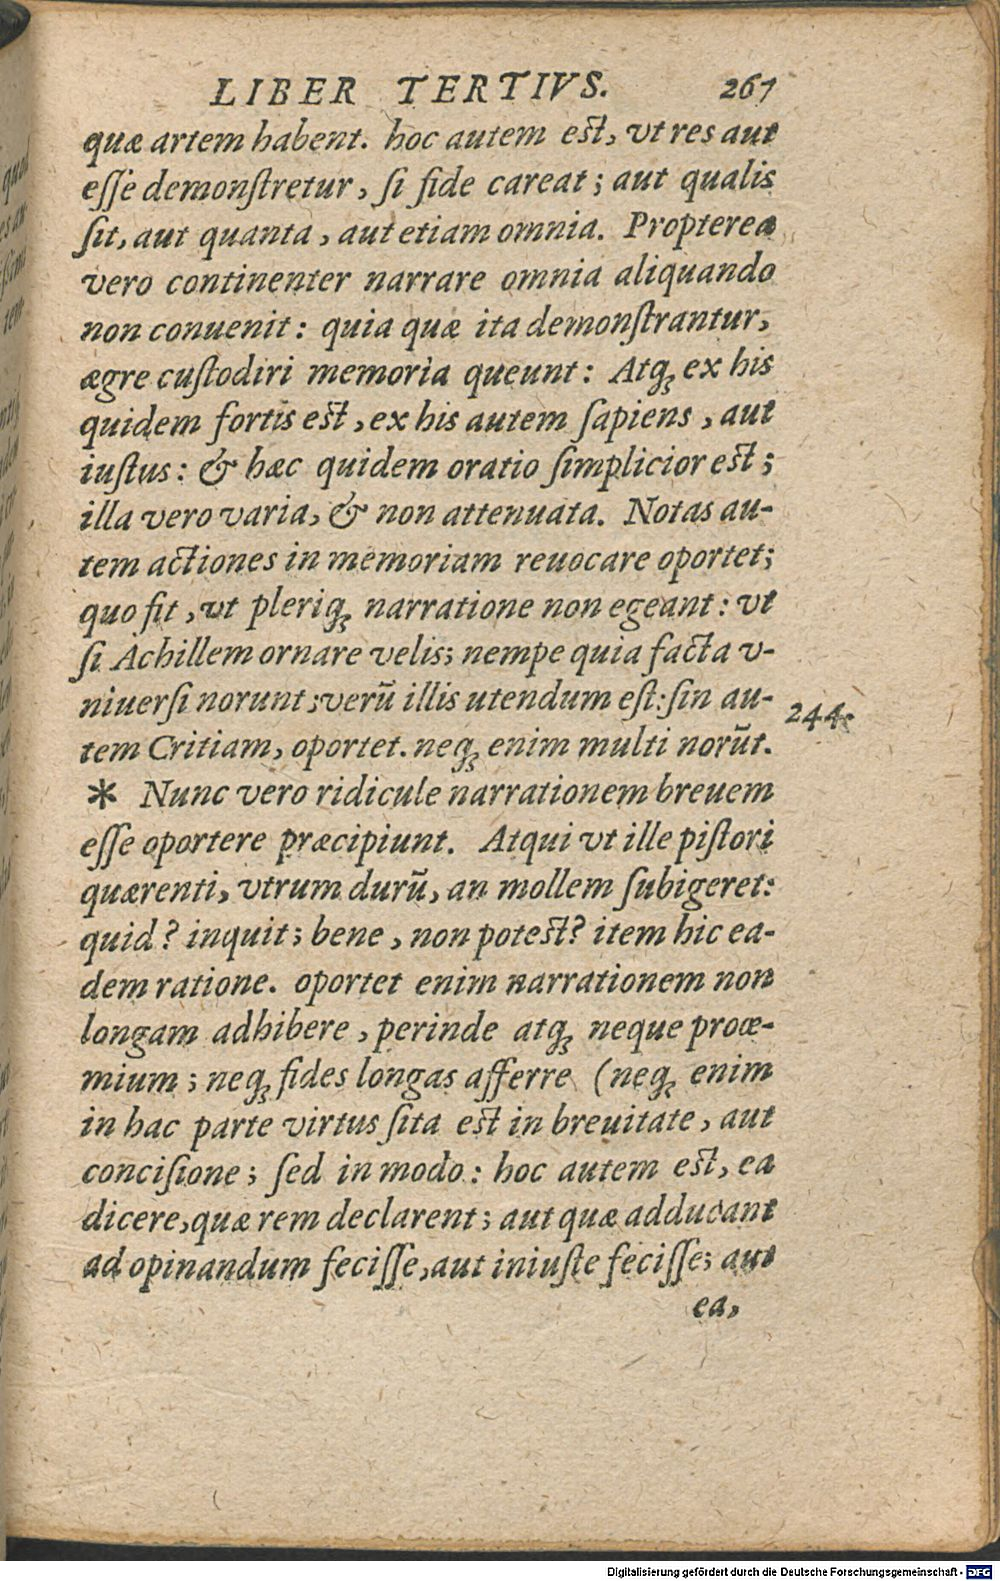 LIBER TERTIVS. 267
quæ artem habent. hoc autem est, vt res aut
eſſe demonſtretur, ſi fide careat; aut qualis
ſit, aut quanta, aut etiam omnia. Propterea
vero continenter narrare omnia aliquando
non conuenit: quia quæ ita demonſtrantur,
ægre cuſtodiri memoria queunt: Atq; ex his
quidem fortis est, ex his autem ſapiens, aut
iuſtus: & hæc quidem oratio ſimplicior est;
illa vero varia, & non attenuata. Notas au-
tem actiones in memoriam reuocare oportet;
quo fit, vt pleriq; narratione non egeant: vt
ſi Achillem ornare velis; nempe quia facta v-
niuerſi norunt; verũ illis utendum eſt: ſin au-
244.
tem Critiam, oportet. neq; enim multi norũt.
* Nunc vero ridicule narrationem breuem
eſſe oportere præcipiunt. Atqui vt ille piſtori
quærenti, vtrum durũ, an mollem ſubigeret:
quid? inquit; bene, non potest? item hic ea-
dem ratione. oportet enim narrationem non
longam adhibere, perinde atq; neque proœ-
mium; neq; fides longas afferre (neq; enim
in hac parte virtus ſita est in breuitate, aut
conciſione; ſed in modo: hoc autem est, ea
dicere, quæ rem declarent; aut quæ adducant
ad opinandum feciſſe, aut iniuſte feciſſe; aut
ea,
Digitalisierung gefördert durch die Deutsche Forschungsgemeinschaft - DFG